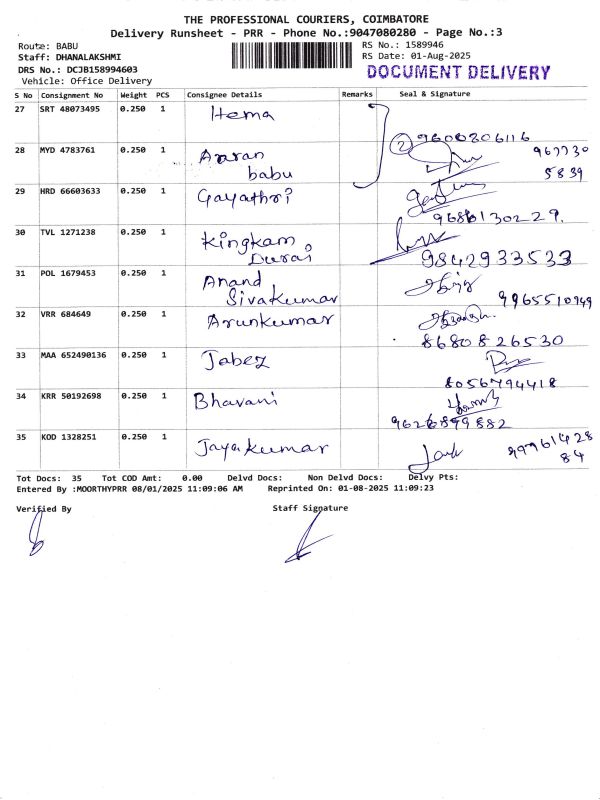 THE PROFESSIONAL COURIERS, COIMBATORE
Delivery Runsheet - PRR - Phone No.:9047080280 - Page No.:3
Route: BABU
RS No.: 1589946
Staff: DHANALAKSHMI
RS Date: 01-Aug-2025
DRS No.: DCJB158994603
DOCUMENT DELIVERY
Vehicle: Office Delivery
S No Consignment No Weight PCS Consignee Details Remarks Seal & Signature
27 SRT 48073495 0.250 1 Hema
② 9600206116
28 MYD 4783761 0.250 1 Aaran babu 967730 5839
29 HRD 66603633 0.250 1 Gayathri
9686130229.
30 TVL 1271238 0.250 1 Kingkam Durai 9842933533
31 POL 1679453 0.250 1 Anand Sivakumar 9965510949
32 VRR 684649 0.250 1 Arunkumar
86808 26530
33 MAA 652490136 0.250 1 Jabez
8056794418
34 KRR 50192698 0.250 1 Bhavani
9626899882
35 KOD 1328251 0.250 1 Jayakumar 99961428 84
Tot Docs: 35 Tot COD Amt: 0.00 Delvd Docs: Non Delvd Docs: Delvy Pts:
Entered By :MOORTHYPRR 08/01/2025 11:09:06 AM Reprinted On: 01-08-2025 11:09:23
Verified By Staff Signature